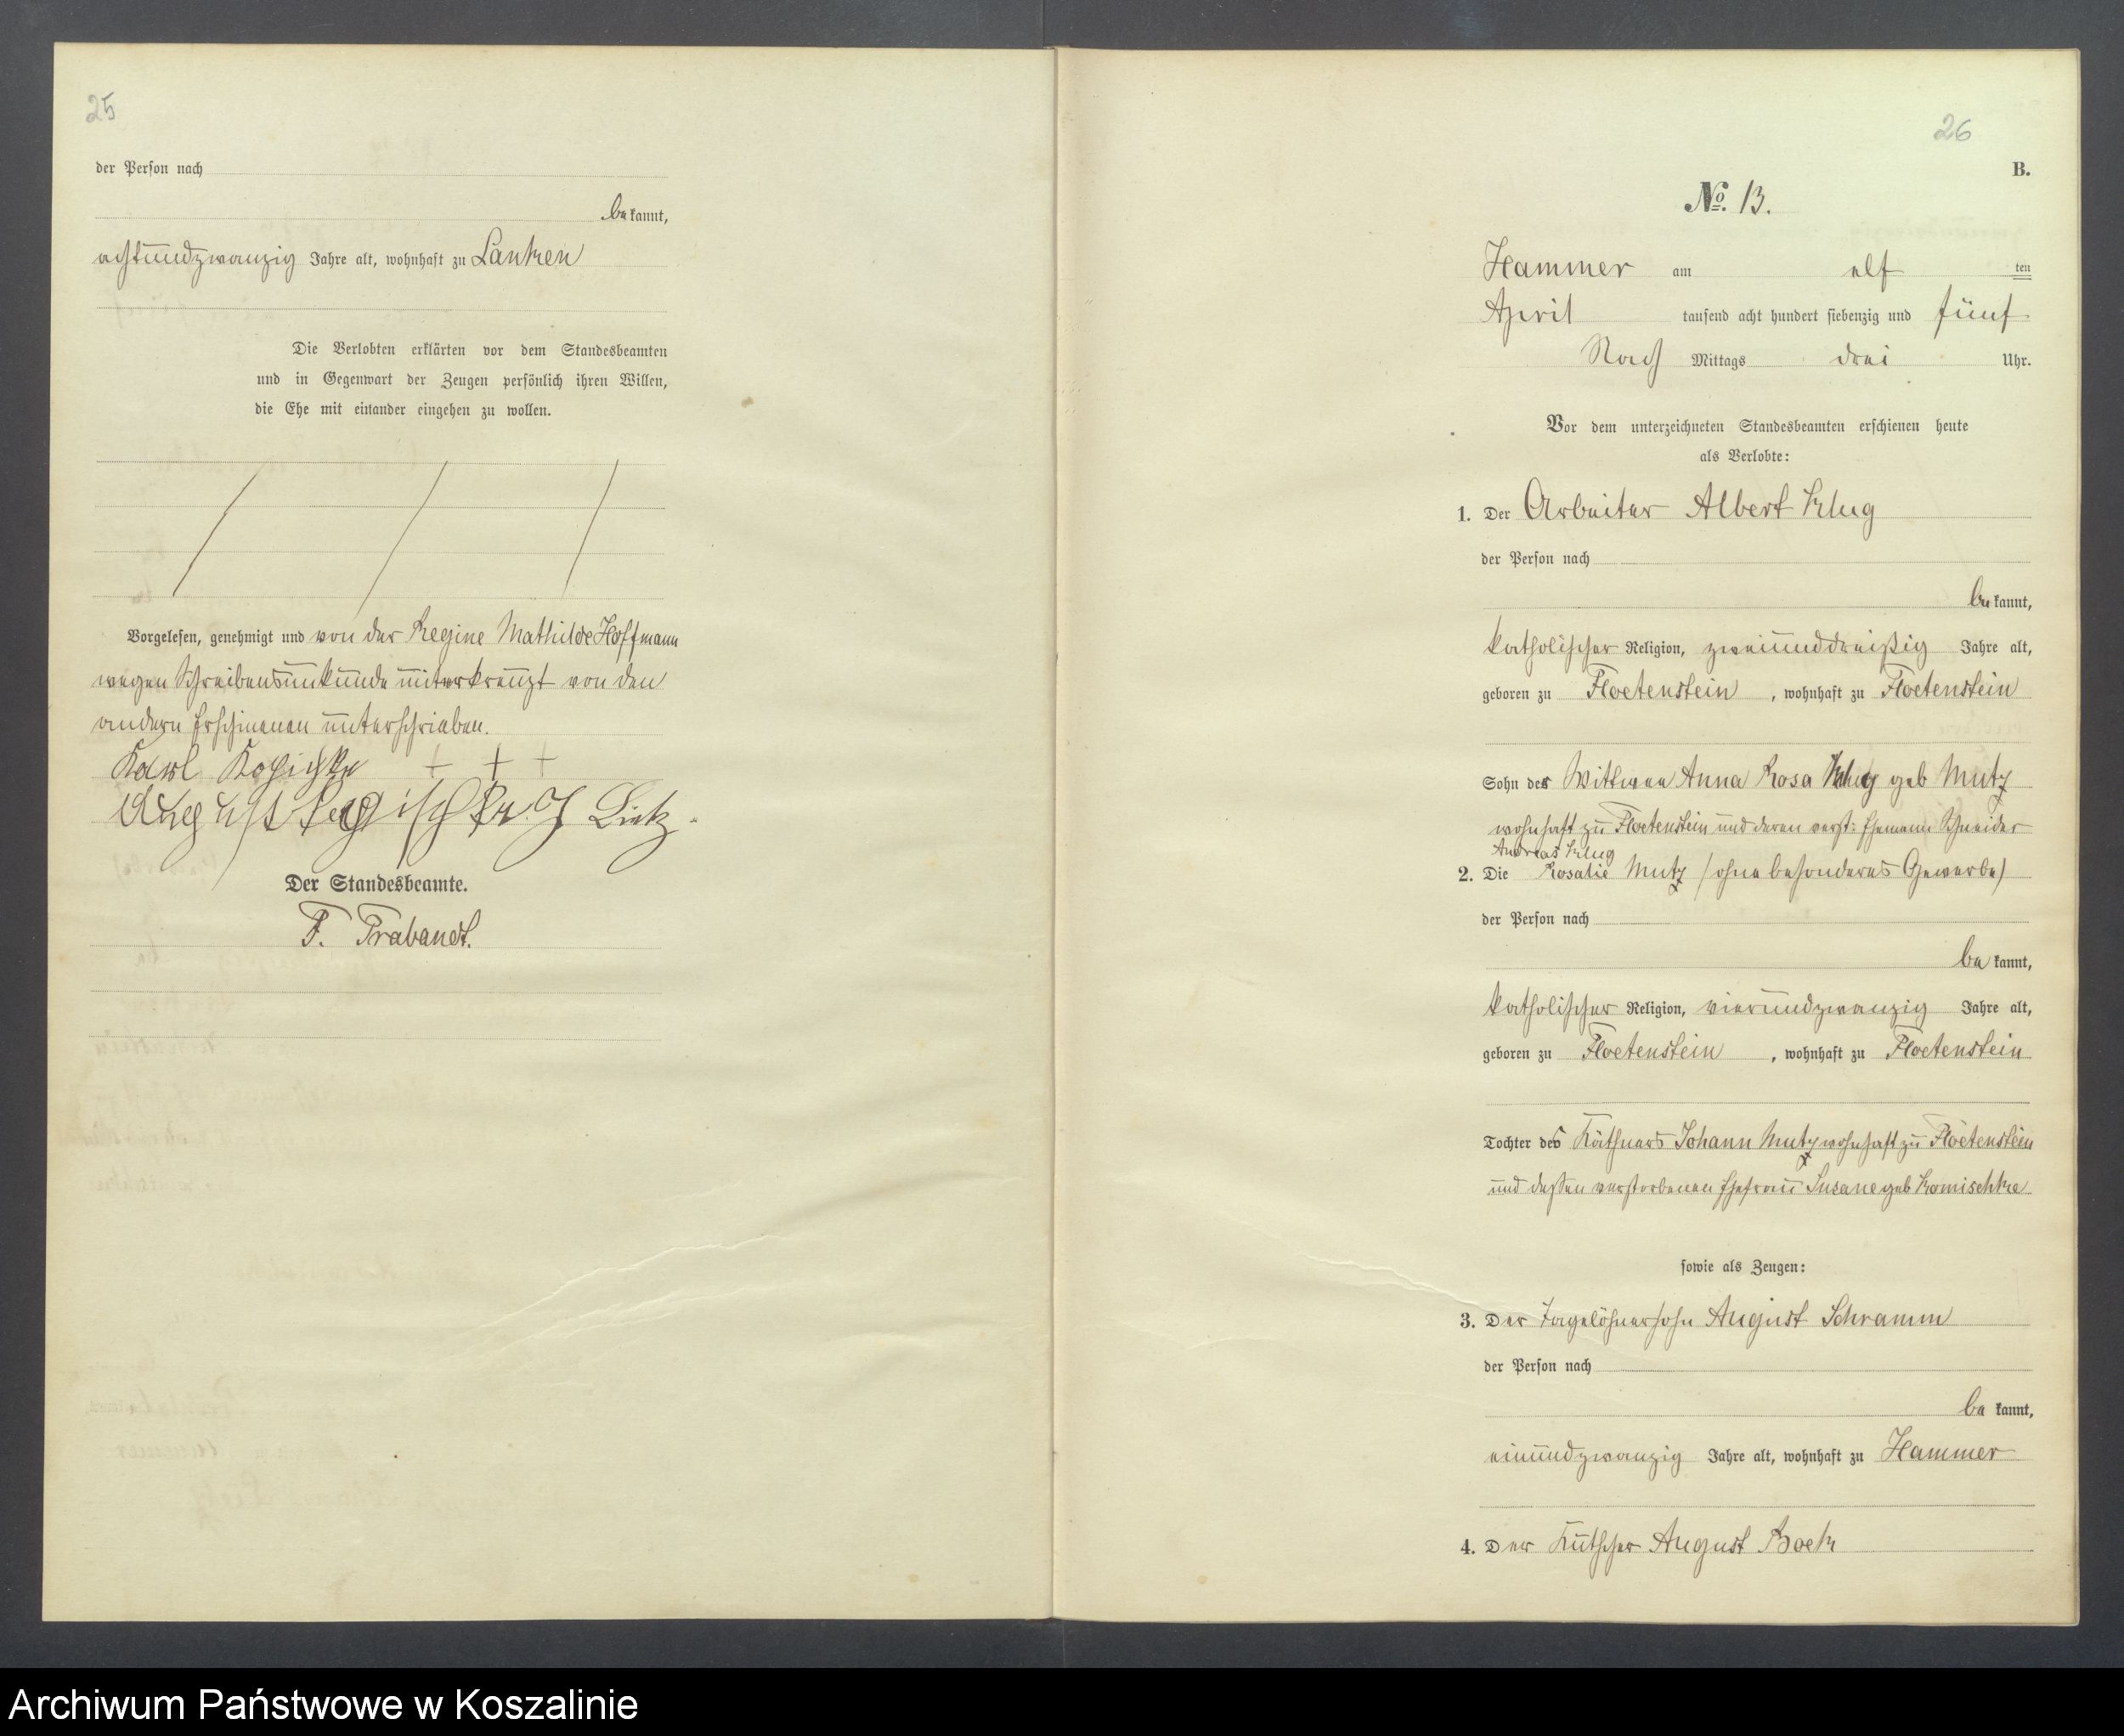 25
der Person nach
bekannt,
achtundzwanzig Jahre alt, wohnhaft zu Lanken
Die Verlobten erklärten vor dem Standesbeamten
und in Gegenwart der Zeugen persönlich ihren Willen,
die Ehe mit einander eingehen zu wollen.
Vorgelesen, genehmigt und von der Regine Mathilde Hoffmann
wegen Schreibensunkunde unterkreuzt von den
andern Erschienenen unterschrieben.
Karl + + +
August Lietz.
Der Standesbeamte.
F. Prabandt.
26
B.
No. 13.
Hammer am elf ten
April tausend acht hundert siebenzig und fünf
Nach Mittags drei Uhr.
Vor dem unterzeichneten Standesbeamten erschienen heute
als Verlobte:
1. Der Arbeiter Albert Klug
der Person nach
bekannt,
katholischer Religion, zweiunddreißig Jahre alt,
geboren zu Floetenstein, wohnhaft zu Floetenstein
Sohn der Wittwe Anna Rosa Klug geb Mutz
wohnhaft zu Floetenstein und deren verst: Ehemann Schneider
Andreas Klug
2. Die Rosalie Mutz (ohne besonderes Gewerbe)
der Person nach
bekannt,
katholischer Religion, vierundzwanzig Jahre alt,
geboren zu Floetenstein, wohnhaft zu Floetenstein
Tochter des Käthners Johann Mutz wohnhaft zu Floetenstein
und dessen verstorbenen Ehefrau Susane geb Komischke
sowie als Zeugen:
3. Der Tagelöhnersohn August Schramm
der Person nach
bekannt,
einundzwanzig Jahre alt, wohnhaft zu Hammer
4. Der Kutscher August Boek
Archiwum Państwowe w Koszalinie